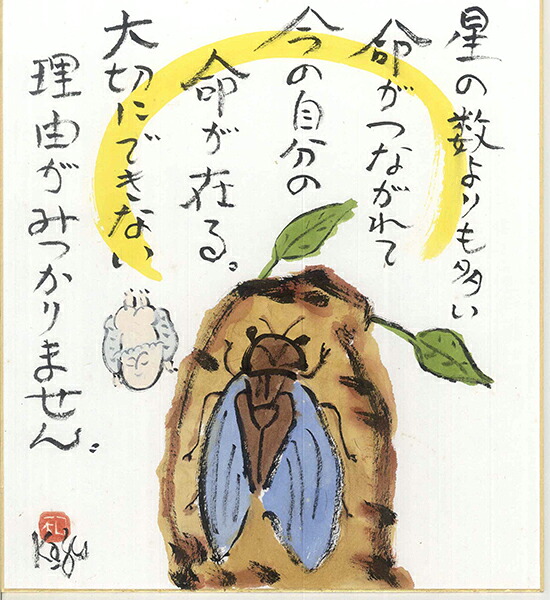 星の数よりも多い
命がつながれて
今の自分の
命が在る。
大切にできない
理由がみつかりません。